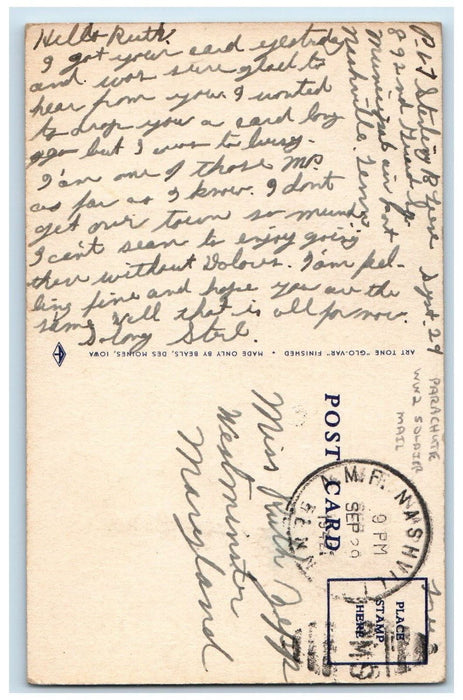 Hello Ruth,
I got your card yestrday
and was sure glad to
hear from you. I wonted
to drop you a card long
ago but I was to busy.
I'am one of those M.P.
as far as I know. I dont
get over town so much.
I can't seam to enjoy going
there without Dolores. I'am fee-
ling fine and hope you are the
same. Well that is all for now.
So long Sterl.
Pvt Sterling R
892nd Guard Sq
Municipal air port
Nashville. Tenn.
Sept. 29
ART TONE "GLO-VAR" FINISHED • MADE ONLY BY BEALS, DES MOINES, IOWA
PARACHUTE
WW2 SOLDIER
MAIL
POST CARD
A.M.F. NASHVILLE
9 PM
SEP 29
TENN.
Free
PLACE
STAMP
HERE
Miss Ruth
Westminster
Maryland